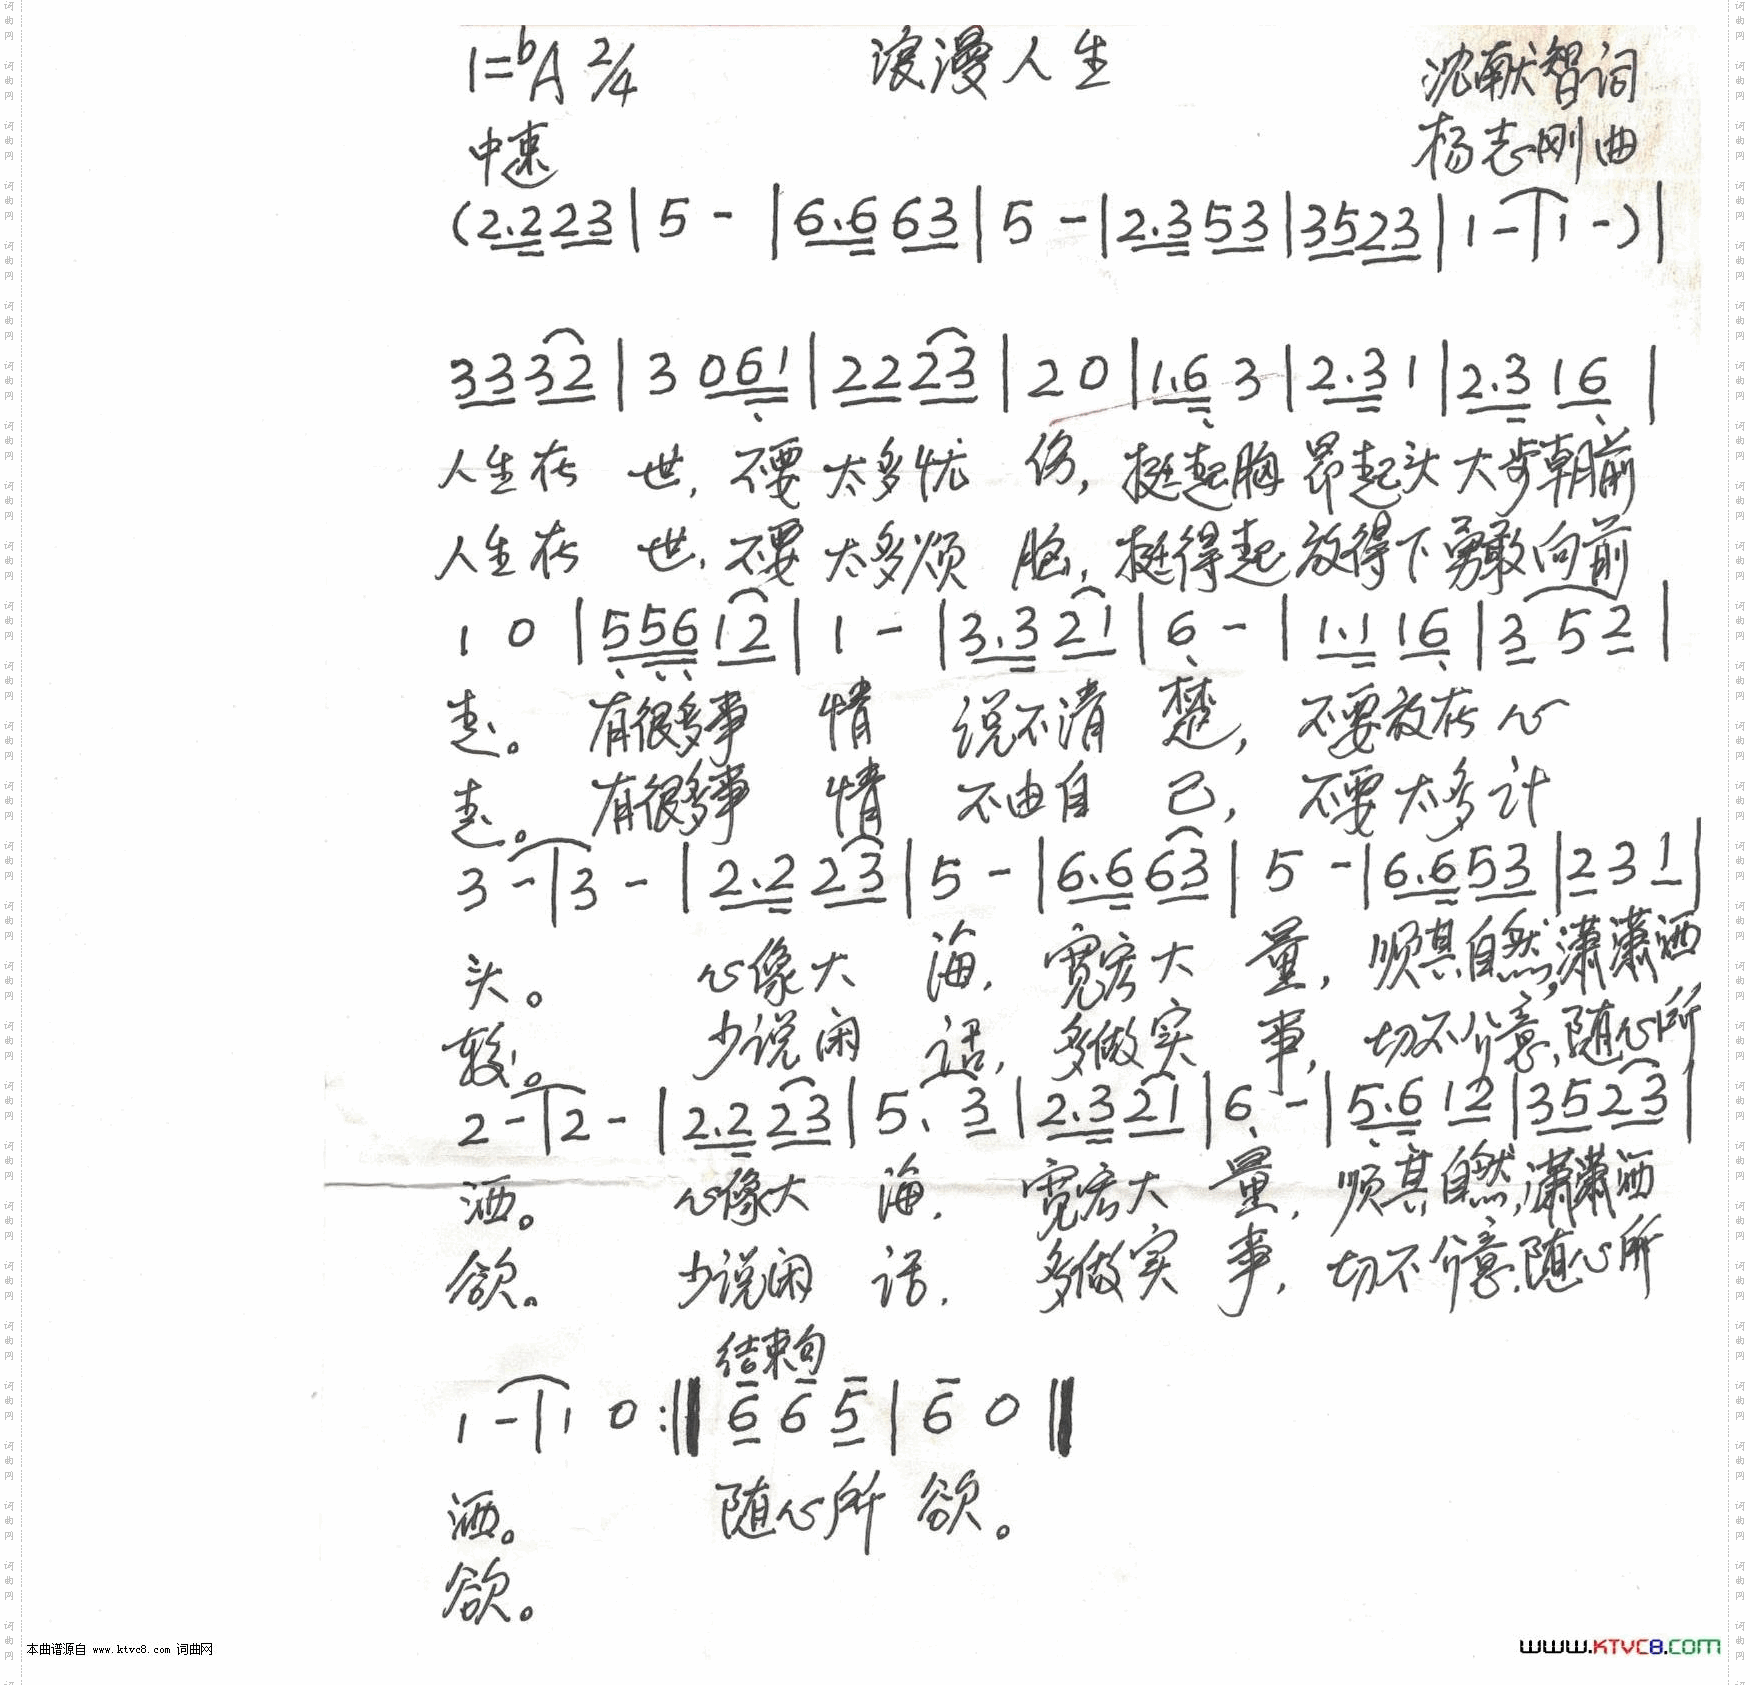 1=ᵇA 2/4 浪漫人生 沈献智词
中速 杨志刚曲
(2.2 2 3 | 5 - | 6.6 6 3 | 5 - | 2.3 5 3 | 3 5 2 3 | 1 - | 1 -) |
3 3 3 2 | 3 0 6 1 | 2 2 2 3 | 2 0 | 1.6 3 | 2.3 1 | 2.3 1 6 |
人生在 世,不要太多忧 伤,挺起胸昂起头大步朝前
人生在 世,不要太多烦 脑,挺得起放得下勇敢向前
1 0 | 5 5 6 1 2 | 1 - | 3.3 2 1 | 6 - | 1.1 1 6 | 3 5 2 |
走。有很多事 情 说不清 楚,不要放在心
走。有很多事 情 不由自 己,不要太多计
3 - | 3 - | 2.2 2 3 | 5 - | 6.6 6 3 | 5 - | 6.6 5 3 | 2 3 1 |
头。 心像大 海,宽宏大 量,顺其自然,潇潇洒
较。 少说闲 话,多做实 事,切不介意,随心所
2 - | 2 - | 2.2 2 3 | 5. 3 | 2.3 2 1 | 6 - | 5.6 1 2 | 3 5 2 3 |
洒。 心像大 海,宽宏大 量,顺其自然,潇潇洒
欲。 少说闲 话,多做实 事,切不介意,随心所
结束句
1 - | 1 0 :‖ 6 6 5 | 6 0 ‖
洒。 随心所 欲。
欲。
本曲谱源自 www.ktvc8.com 词曲网
WWW.KTVC8.COM